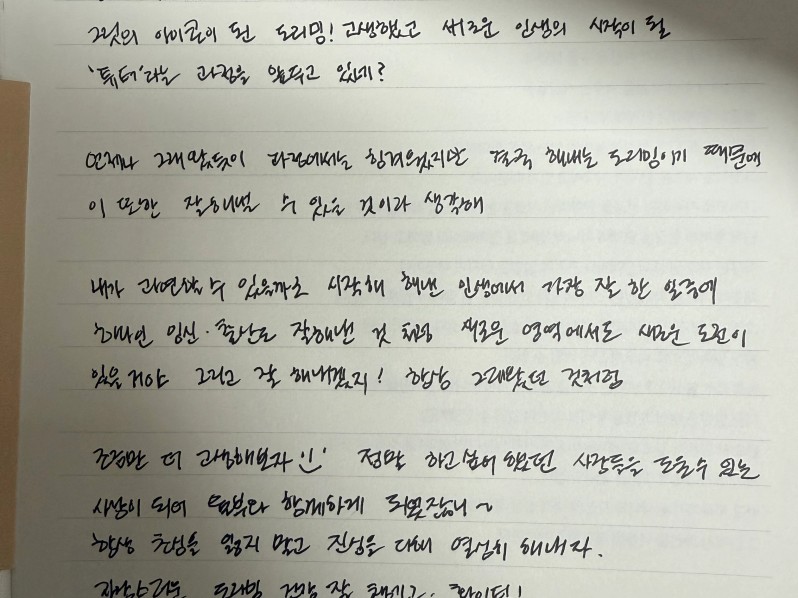 그것의 아이콘이 된 도리밍! 고생했고 새로운 인생의 시작이 될
'튜터'라는 과정을 앞두고 있네?
언제나 그래왔듯이 과정에서는 힘겨웠지만 결국 해내는 도리밍이기 때문에
이 또한 잘해낼 수 있을 것이라 생각해
내가 과연할 수 있을까로 시작해 해낸 인생에서 가장 잘 한 일중에
하나인 임신·출산도 잘해낸 것 처럼 새로운 영역에서도 새로운 도전이
있을거야 그리고 잘 해내겠지! 항상 그래왔던 것처럼
조금만 더 고민해보자 정말 하고싶어 했던 사람들을 도울수 있는
사람이 되어 함께하게 되었잖니~
항상 초심을 잃지 말고 진심을 다해 열심히 해내자.
자랑스러운 도리밍 건강 잘 챙기고, 화이팅!